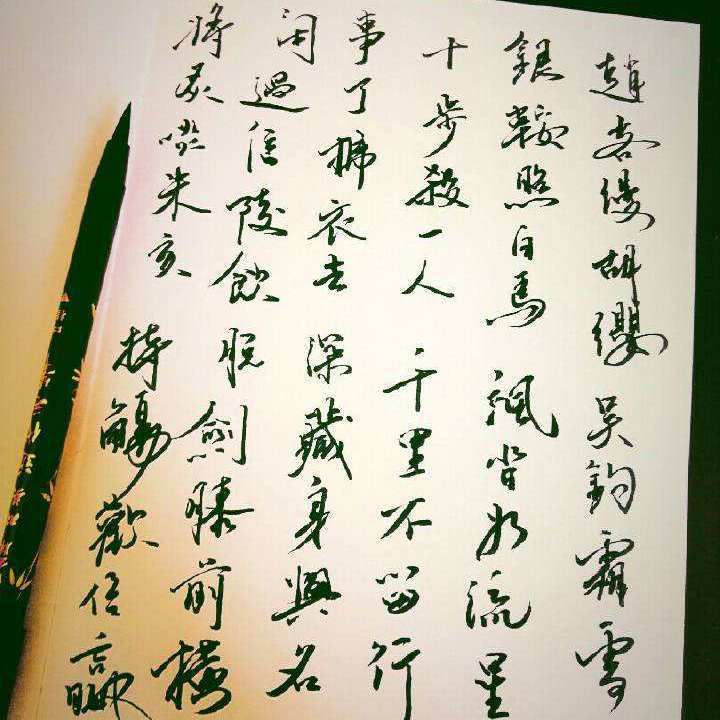 趙客縵胡纓 吳鉤霜雪
銀鞍照白馬 颯沓如流星
十步殺一人 千里不留行
事了拂衣去 深藏身與名
閑過信陵飲 脫劍膝前橫
將炙啖朱亥 持觴勸侯嬴